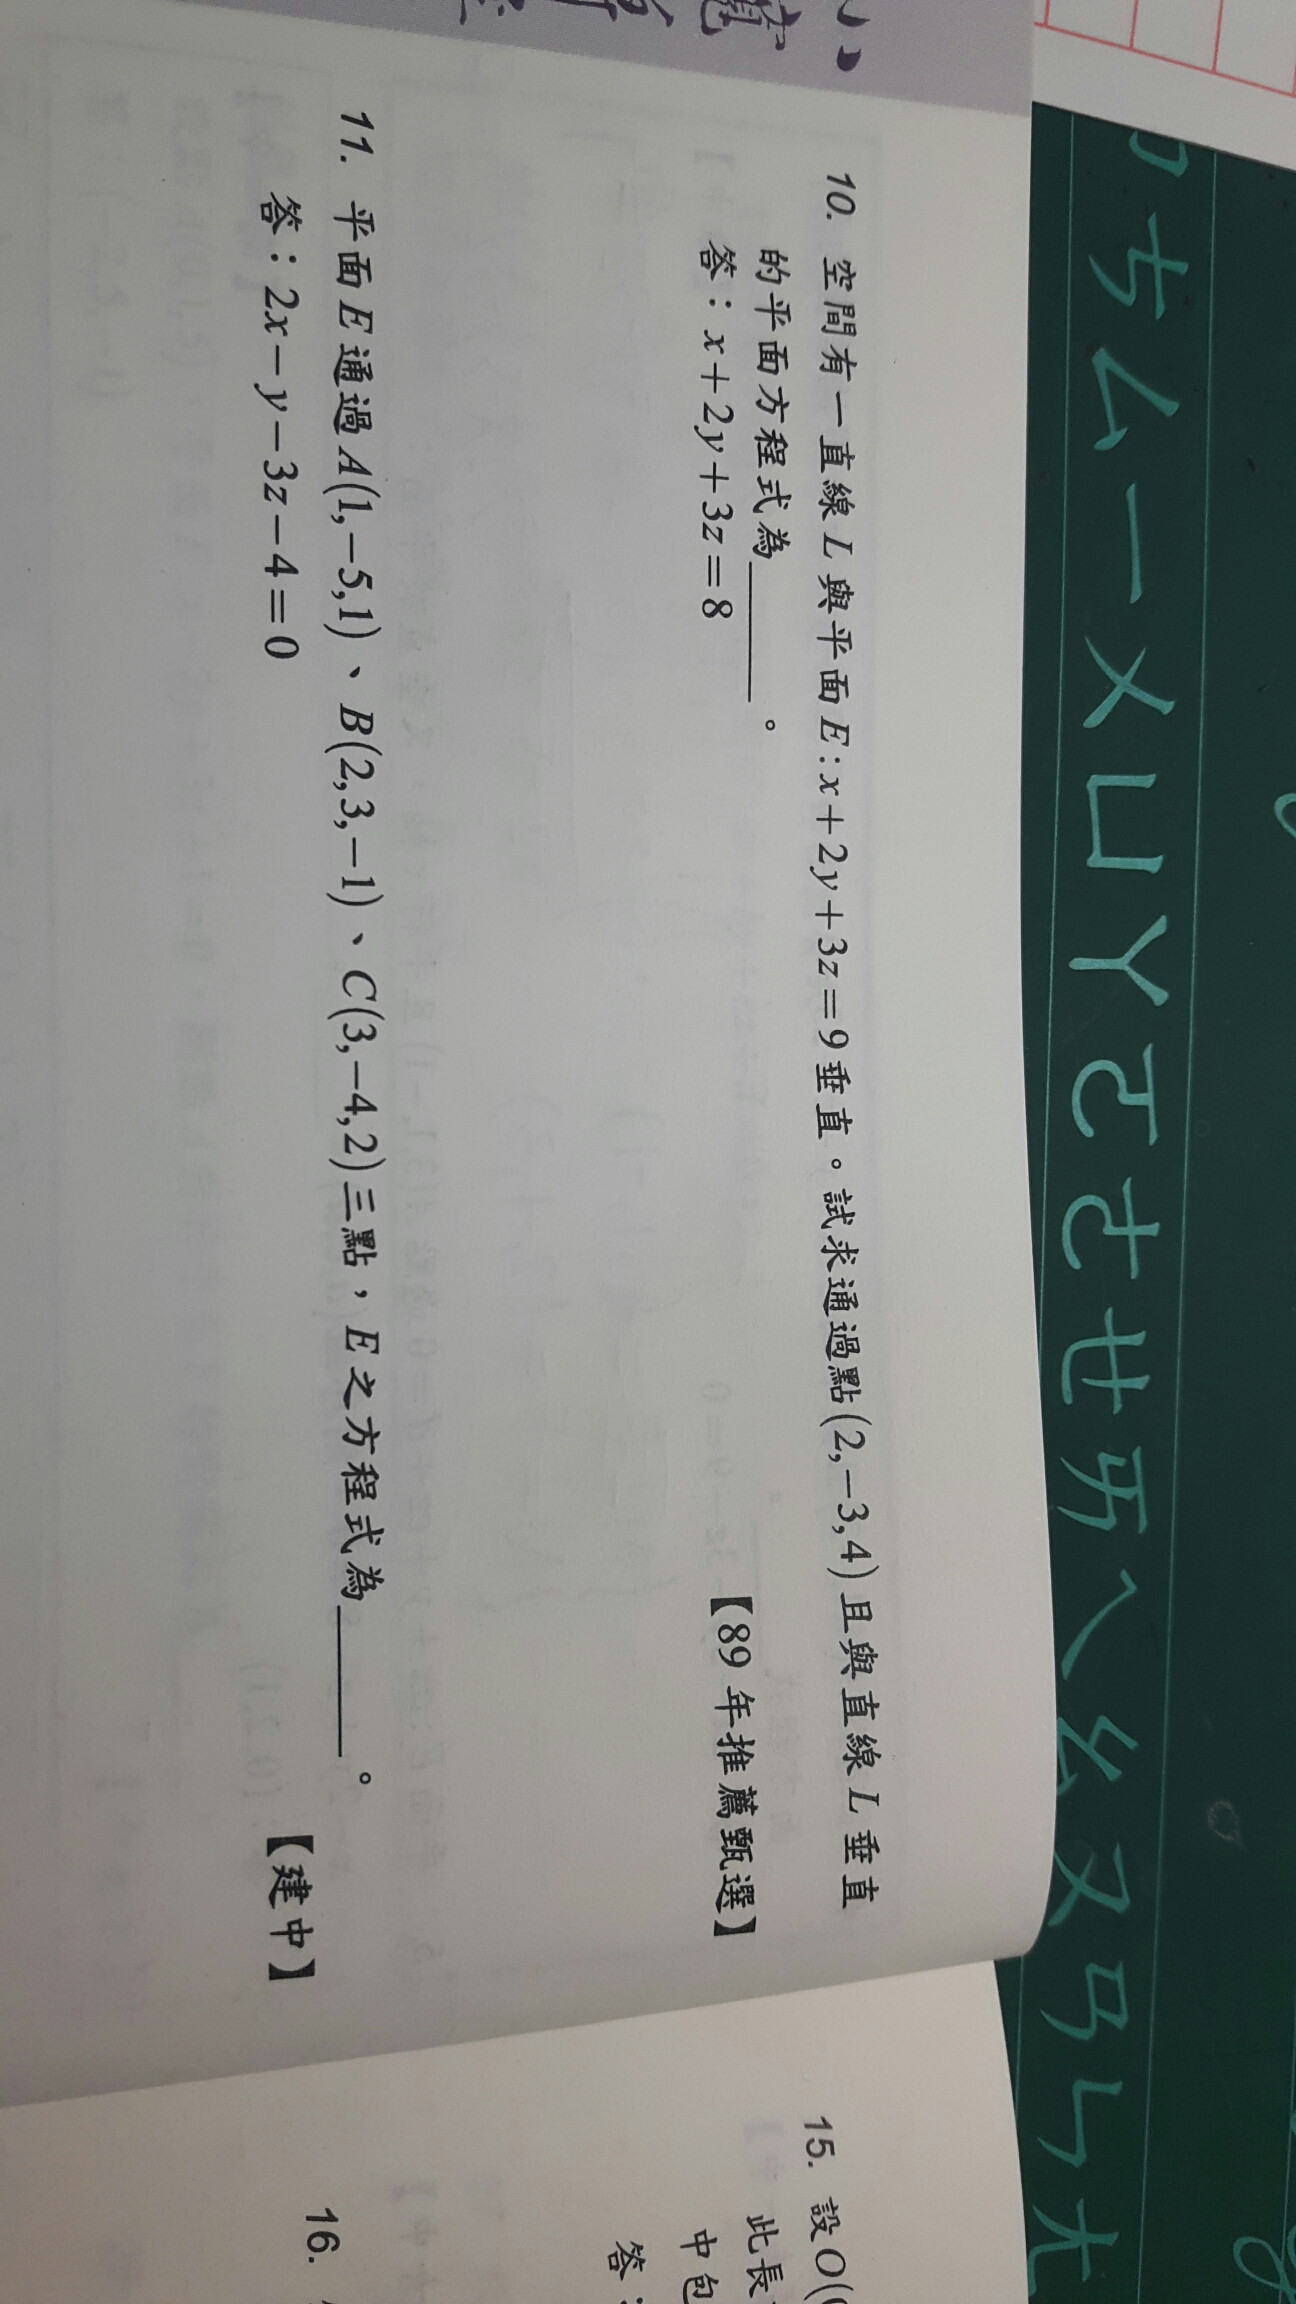 ㄅㄘㄙㄧㄨㄩㄚㄛㄜㄝㄞㄟㄠㄡㄢㄣㄤ
10. 空間有一直線L與平面E:x+2y+3z=9垂直。試求通過點(2,−3,4)且與直線L垂直
的平面方程式為______。
答:x+2y+3z=8 【89年推薦甄選】
11. 平面E通過A(1,−5,1)、B(2,3,−1)、C(3,−4,2)三點,E之方程式為______。
答:2x−y−3z−4=0 【建中】
15. 設O(
此長
中包
答:
16.